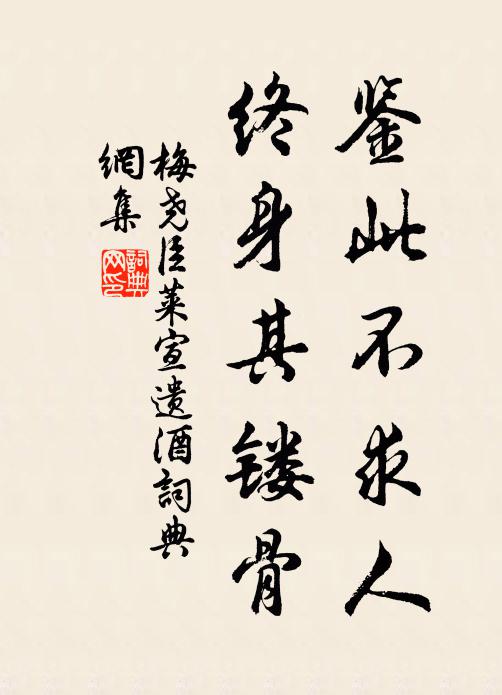 鉴此不求人
终身其镂骨
梅尧臣莱宣遗酒词典
網集
詞典網印